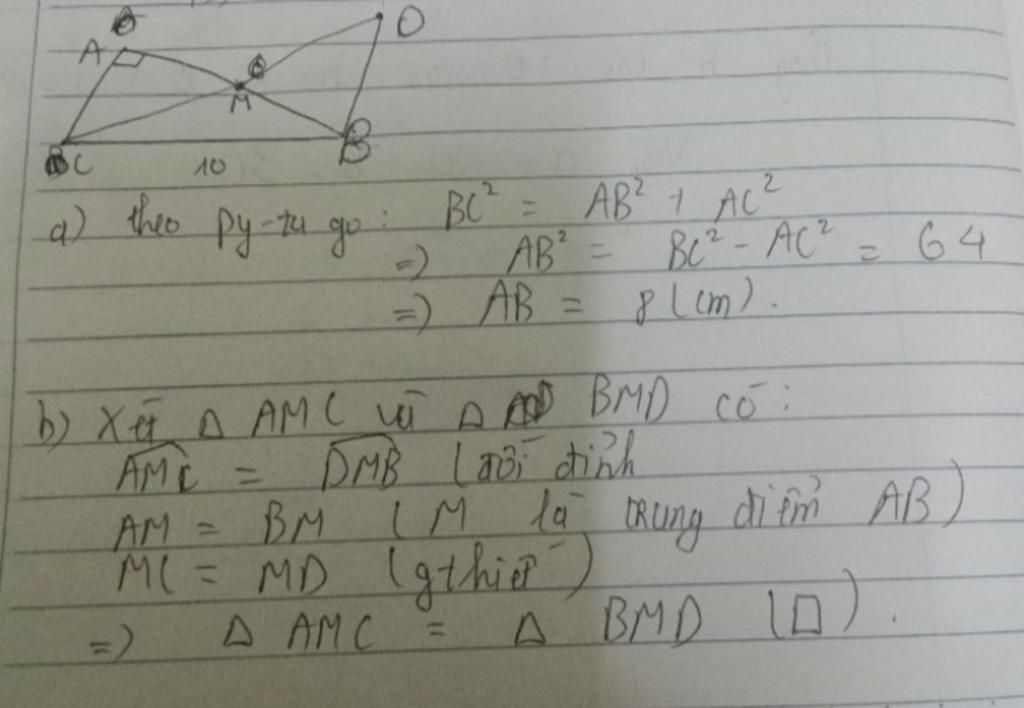 D
A
M
C
10
B
a) theo py-ta go: BC² = AB² + AC²
=> AB² = BC² - AC² = 64
=> AB = 8 (cm).
b) Xét Δ AMC và Δ BMD có:
AMC = DMB (đối đỉnh
AM = BM (M là trung điểm AB)
MC = MD (gthiết)
=> Δ AMC = Δ BMD (□).